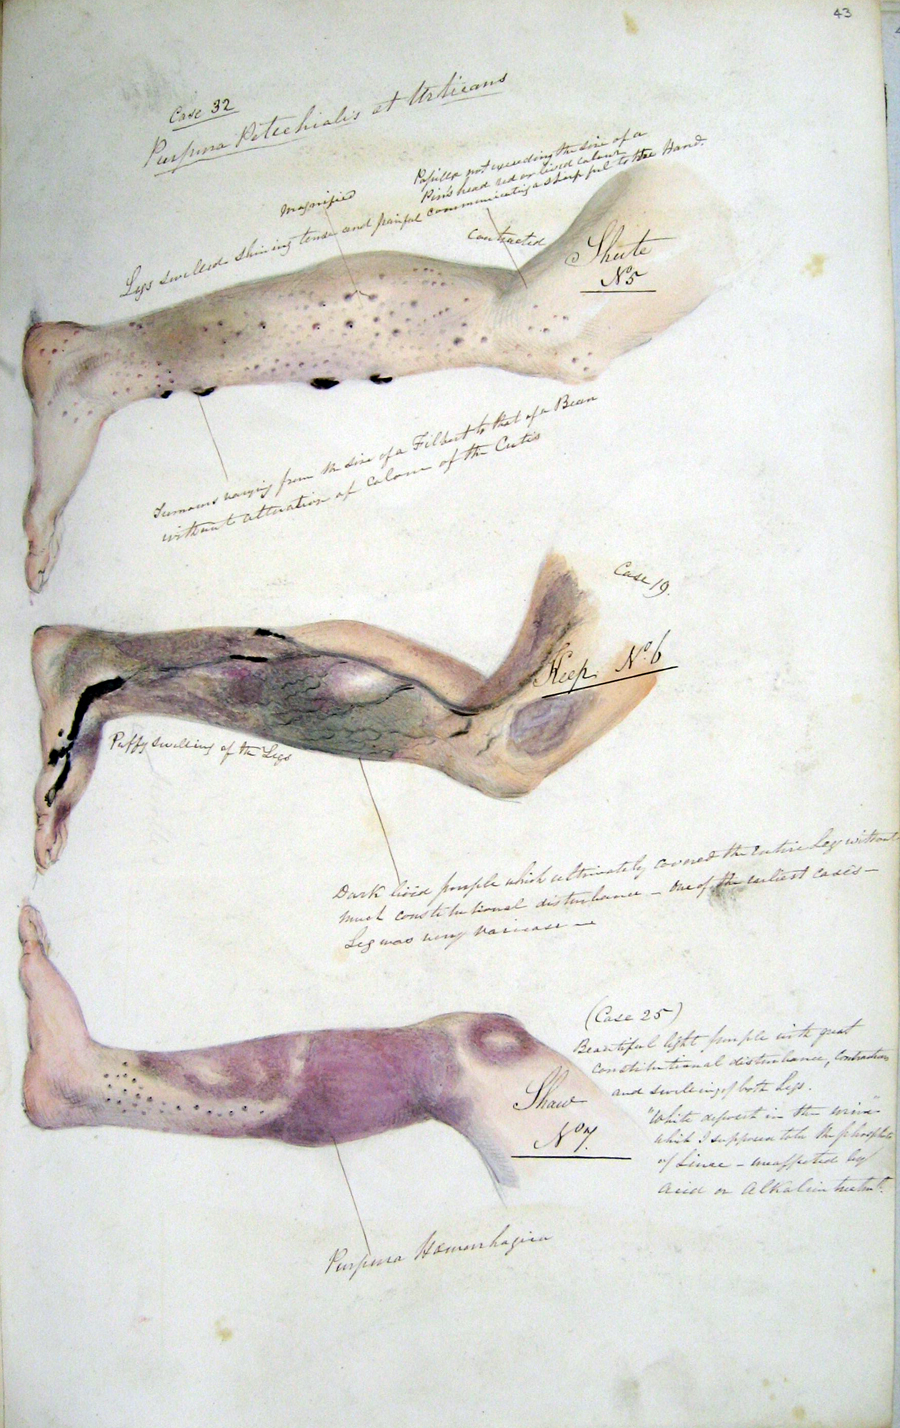 43
Case 32
Purpura Petechialis et Urticans
Papillæ not exceeding the size of a
Pin's head red or livid colour
magnified
Legs swelled shining tense and painful communicating a sharp feel to the Hand.
contracted
Shute
No 5
Tumours varying from the size of a Filbert to that of a Bean
without alteration of Colour of the Cutis
Case 19.
Keep No 6
Puffy swelling of the Legs
Dark livid purple which ultimately covered the entire Leg without
much constitutional disturbance - one of the earliest cases -
Leg was very varicose -
(Case 25)
Beautiful light purple with great
constitutional disturbance, Contraction
and swelling of both Legs.
"White deposit in the urine"
which I supposed to be the phosphate
of Lime - unaffected by
acid or Alkaline treatmt.
Shaw
No 7.
Purpura Hæmorrhagica